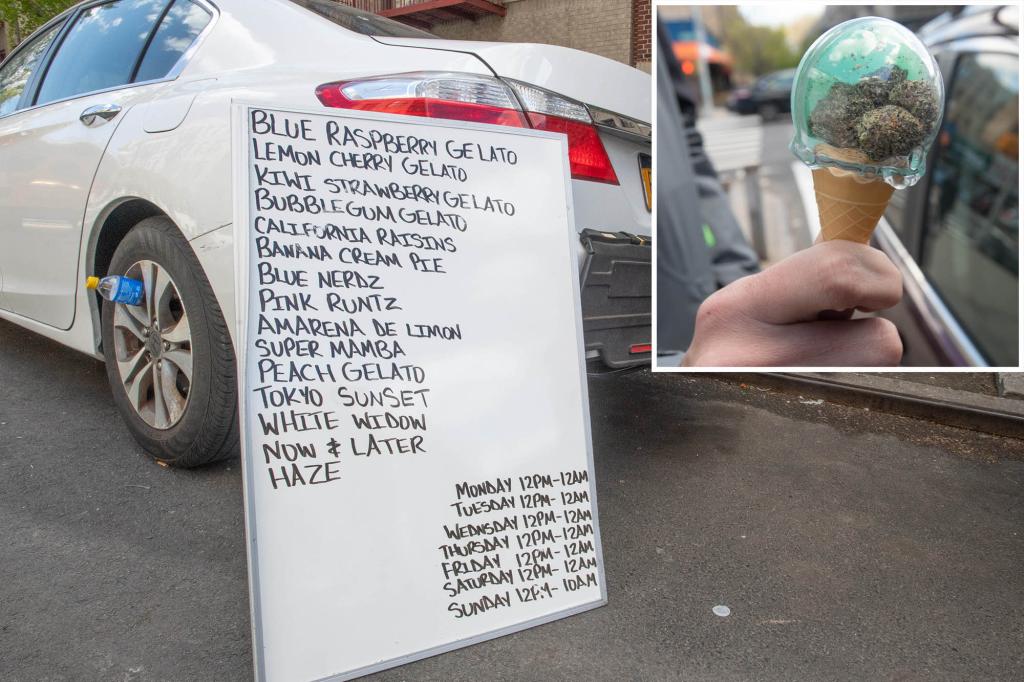 BLUE RASPBERRY GELATO
LEMON CHERRY GELATO
KIWI STRAWBERRY GELATO
BUBBLEGUM GELATO
CALIFORNIA RAISINS
BANANA CREAM PIE
BLUE NERDZ
PINK RUNTZ
AMARENA DE LIMON
SUPER MAMBA
PEACH GELATO
TOKYO SUNSET
WHITE WIDOW
NOW & LATER
HAZE
MONDAY 12PM-12AM
TUESDAY 12PM-12AM
WEDNSDAY 12PM-12AM
THURSDAY 12PM-12AM
FRIDAY 12PM-12AM
SATURDAY 12PM-12AM
SUNDAY 12PM-10AM